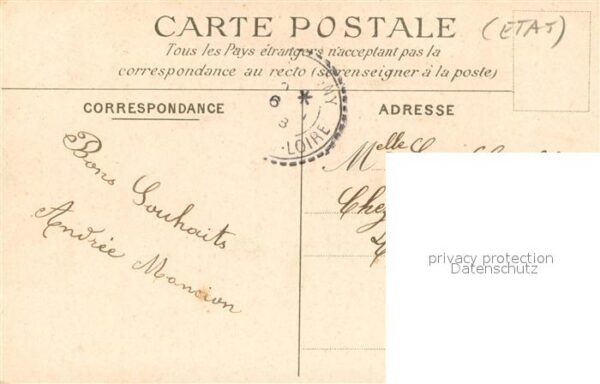 CARTE POSTALE
(ETAT)
Tous les Pays étrangers n'acceptant pas la
correspondance au recto (se renseigner à la poste)
CORRESPONDANCE
ADRESSE
6 *
8
LOIRE
Bons Souhaits
Andrée Mancion
Melle
Chez
privacy protection
Datenschutz